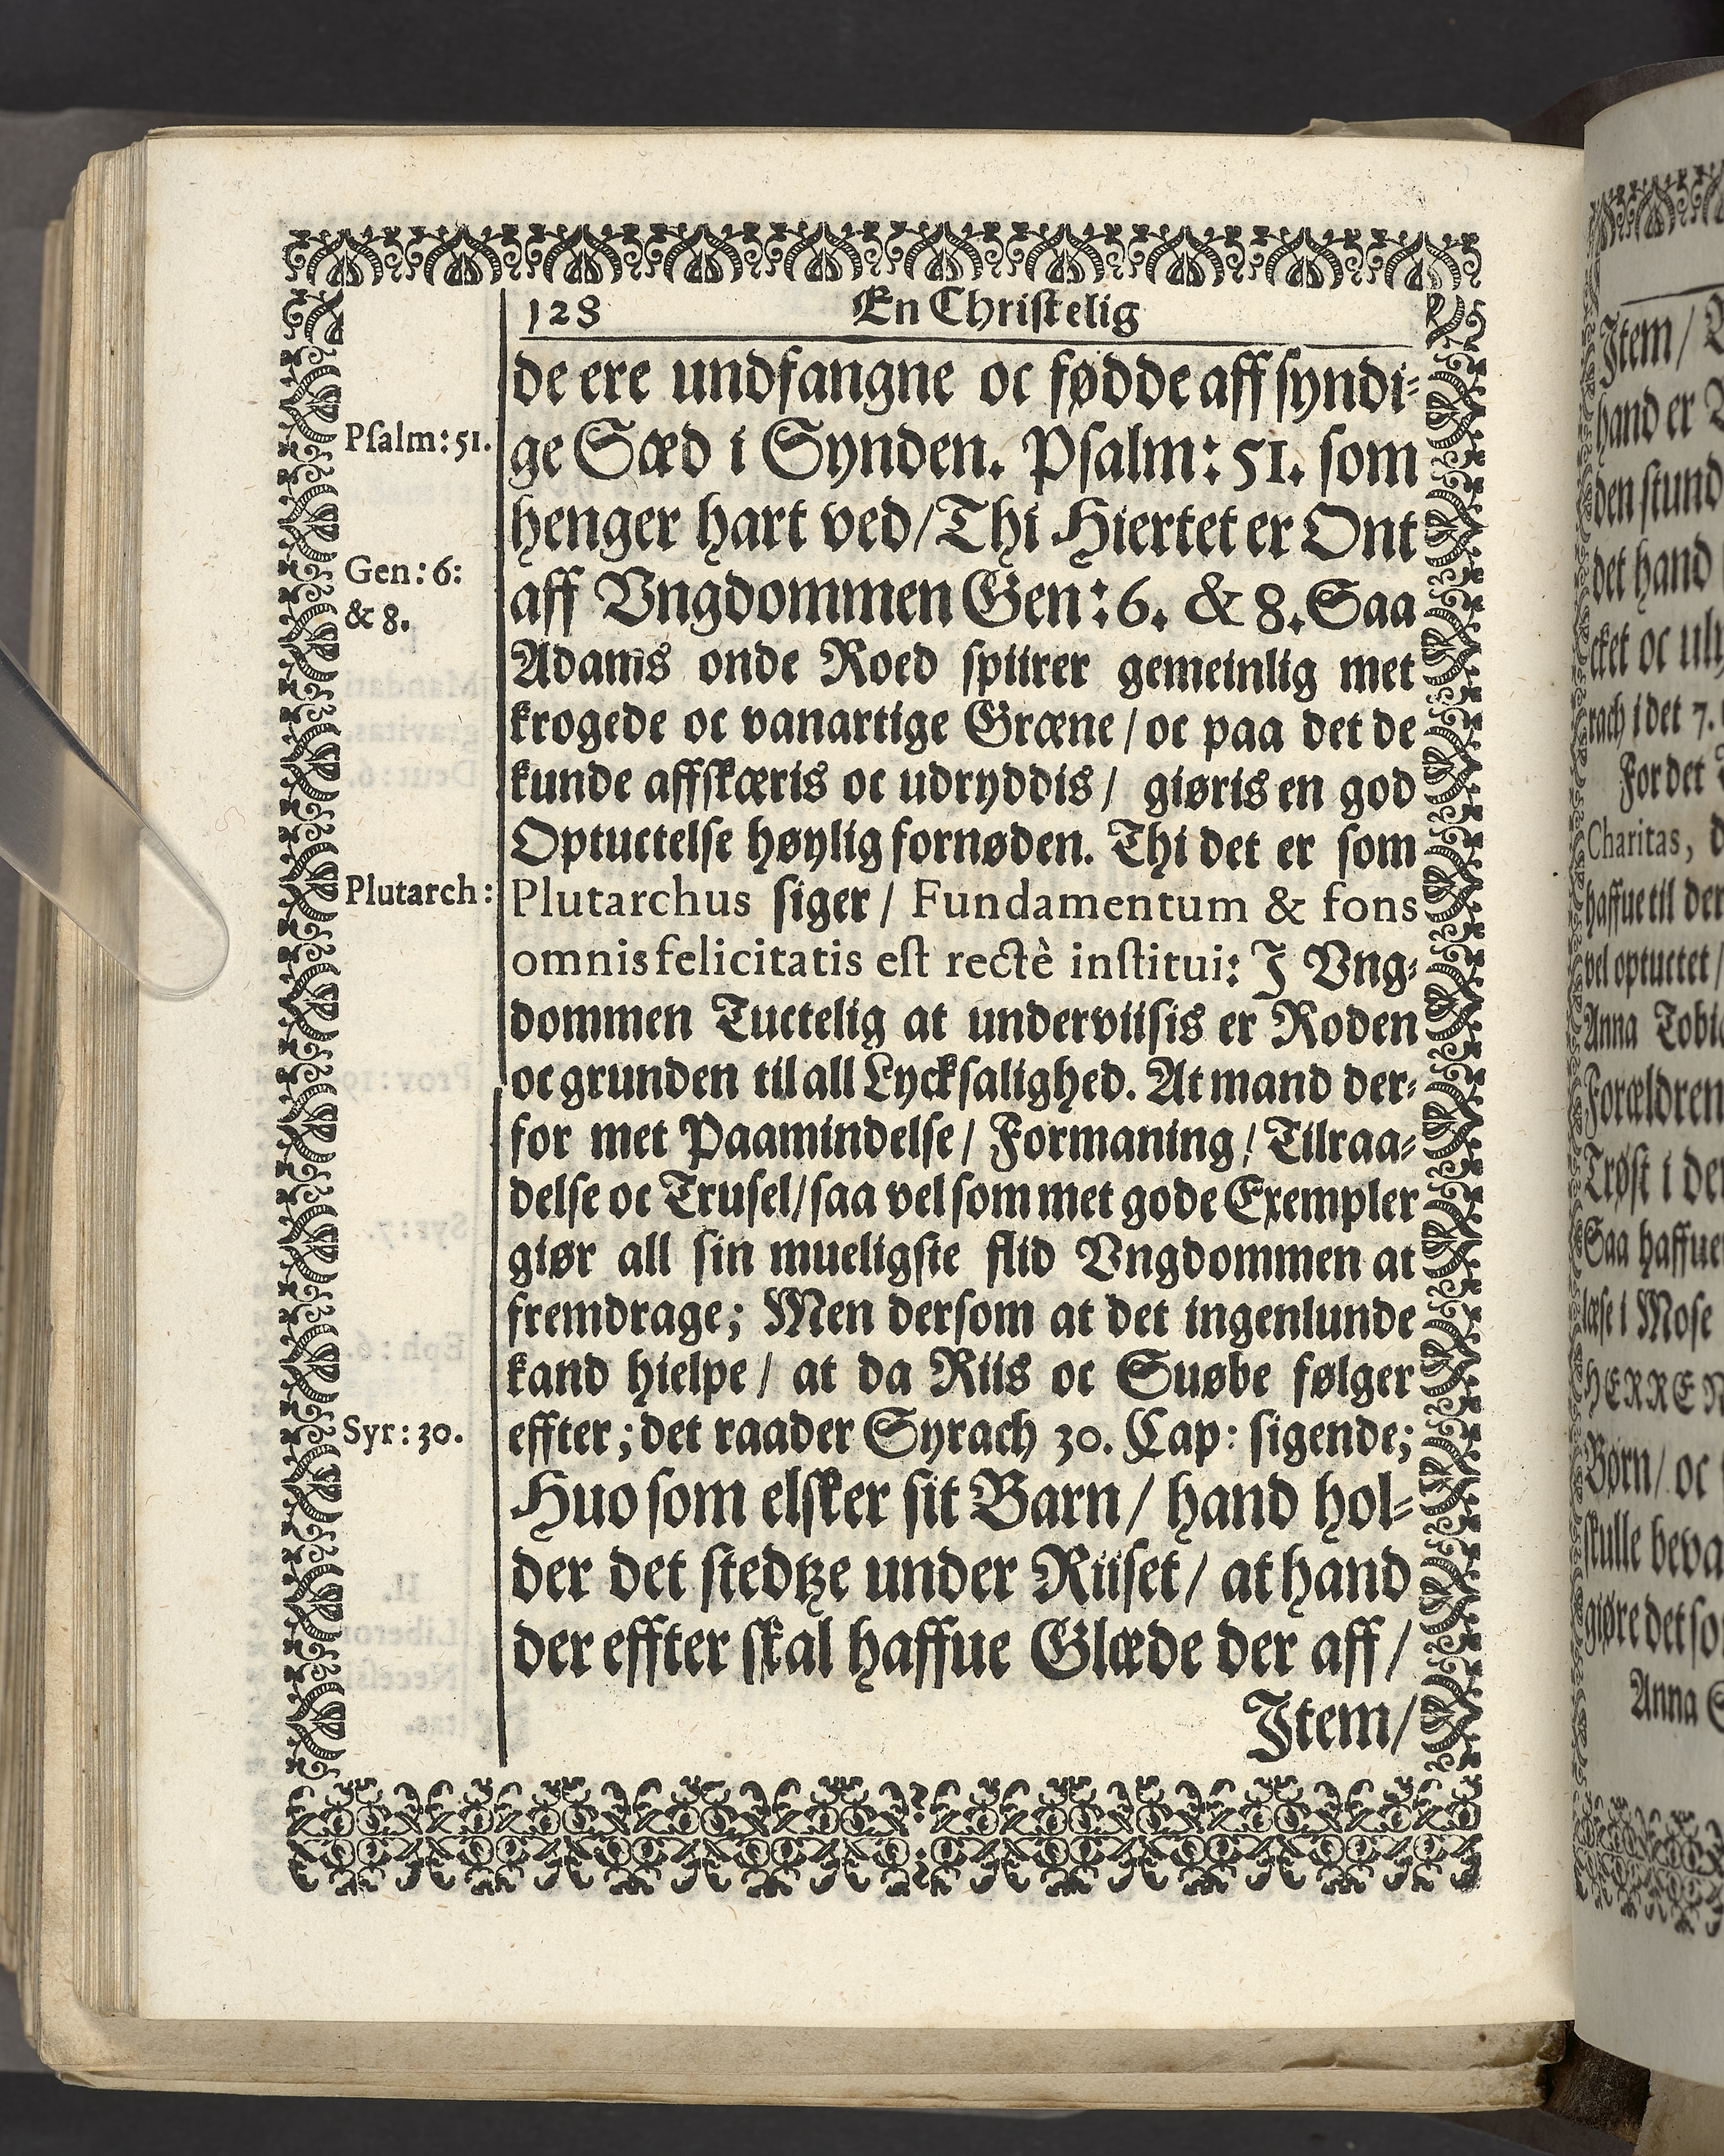 128 En Christelig
de ere undfangne oc fødde aff syndi-
Psalm: 51.
ge Sæd i Synden. Psalm: 51. som
henger hart ved/Thi Hiertet er Ont
Gen: 6:
& 8.
aff Vngdommen Gen: 6. & 8. Saa
Adams onde Roed spiirer gemeinlig met
krogede oc vanartige Græne/oc paa det de
kunde affskæris oc udryddis/ giøris en god
Optuctelse høylig fornøden. Thi det er som
Plutarch:
Plutarchus siger/ Fundamentum & fons
omnis felicitatis est rectè institui: J Vng-
dommen Tuctelig at underviisis er Roden
oc grunden til all Lycksalighed. At mand der-
for met Paamindelse/ Formaning/ Tilraa-
delse oc Trusel/saa vel som met gode Exempler
giør all sin mueligste flid Vngdommen at
fremdrage; Men dersom at det ingenlunde
kand hielpe/ at da Riis oc Suøbe følger
Syr: 30.
effter; det raader Syrach 30. Cap: sigende;
Huo som elsker sit Barn/ hand hol-
der det stedtze under Riiset/ at hand
der effter skal haffue Glæde der aff/
Item/
Item/
hand er
den stund
det hand
cket oc
rach i det 7.
For det
Charitas,
haffue til
vel optuctet/
Anna
Forældren
Trøst i
Saa
læse i Mose
HERRE
Børn/ oc
skulle
giøre det
Anna